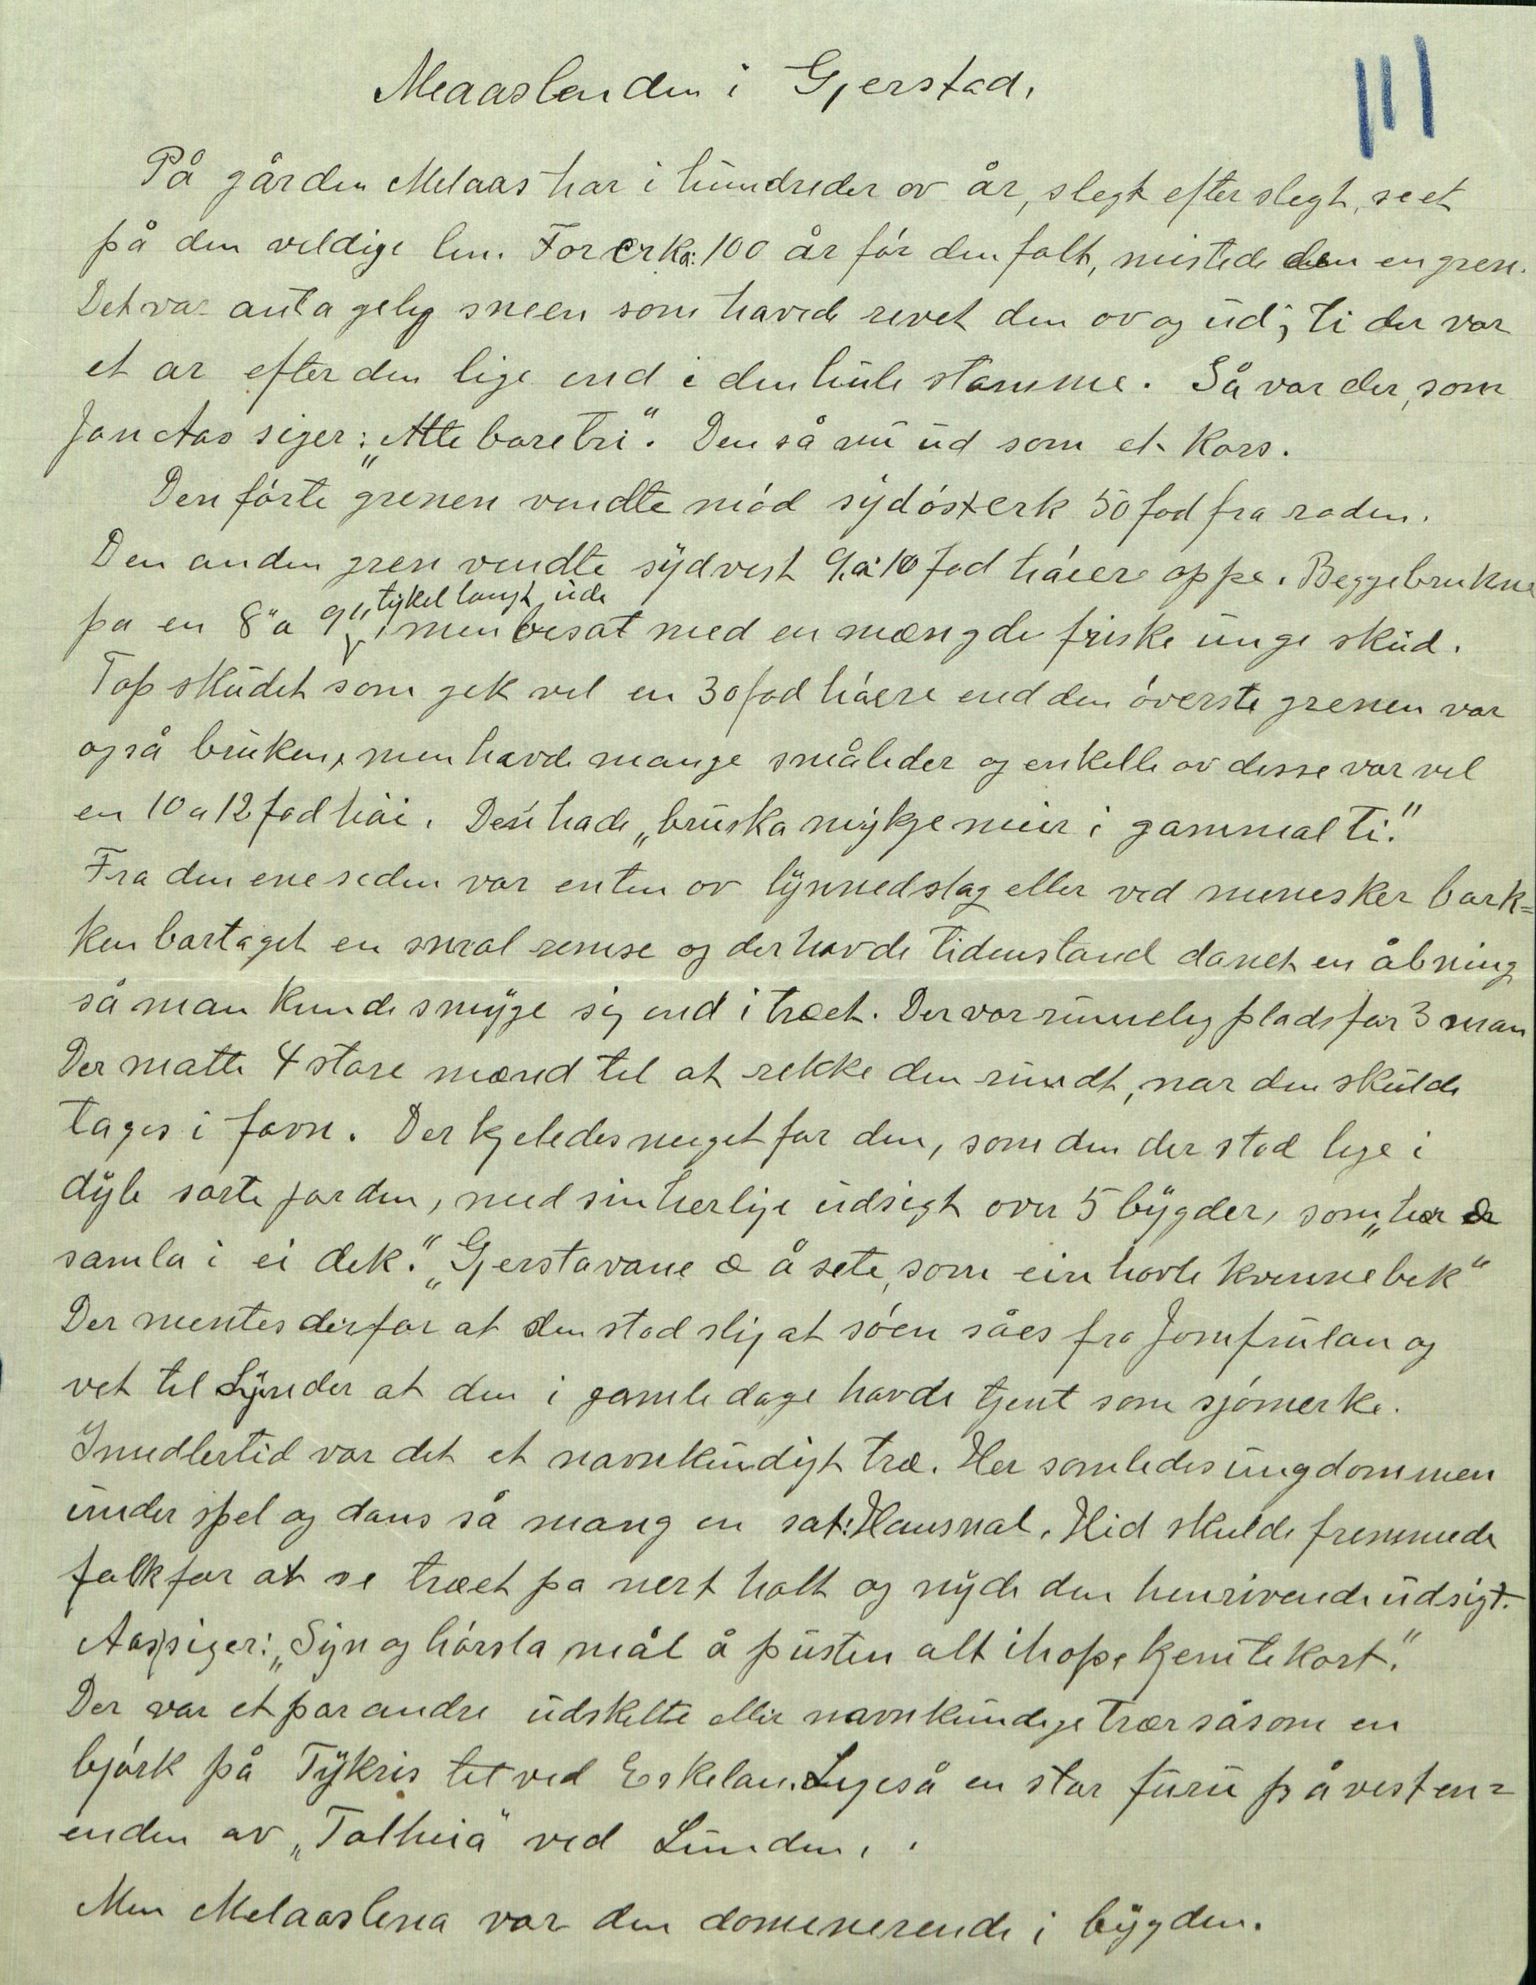 Meaaslenden i Gjerstad.
111
På gården Melaas har i hundreder av år, slegt efter slegt, seet
på den veldige len. For crka: 100 år før den falt, mistede den en gren.
Det var antagelig sneen som havde revet den ov og ud; ti der var
et ar efter den lige end i den hule stamme. Så var der, som
Jon Aas siger: „Atte bare tri". Den så nu ud som et kors.
Den førte grenen vendte mod sydøst crk 50 fod fra roden.
Den anden gren vendte sydvest 9 a 10 fod høiere oppe. Begge brukne
pa en 8" a 9" tykel langt ude, men besat med en mængde friske unge skud.
Topskudet som gek vel en 30 fod høiere end den øverste grenen var
også bruken, men havde mange småleder og enkelle av desse var vel
en 10 a 12 fod høi. Den hade „bruska mykje meir i gammal ti."
Fra den ene seden var enten ov lynnedslag eller ved menesker bark=
ken bortaget en smal remse og der havde tidenstand danet en åbning
så man kunde smyge sig end i træet. Der var rumelig plads før 3 man
Der matte 4 store mænd til at rekke den rundt, nar den skulde
tages i favn. Der kjeledes meget for den, som den der stod lige i
dybe sorte jorden, med sin herlige udsigt over 5 bygder, som „her er
samla i ei dek." „Gjerstavane æ å sete, som ein hovle kvennebek"
Der mentes derfor at den stod slig at søen såes fra Jomfrulan og
vet til Lyngder at den i gamle dage havde tjent som sjømerke.
Imedlertid var det et navnkundigt træ. Her samledes ungdommen
under spel og dans så mang en sat: Hansnat. Hid skulde fremmede
folk for at se træet pa nert holt og nyde den henrivende udsigt.
Aas siger: „Syn og hørsla, mål å pusten alt ihope kjem te kort."
Der var et par andre udskelte eller navnkundige trær såsom en
bjørk på Tykris tet ved Eskelan. Legeså en stor furu på vesten=
enden av „Tolheia" ved Lunden.
Men Melaaslena var den domenerende i bygden.